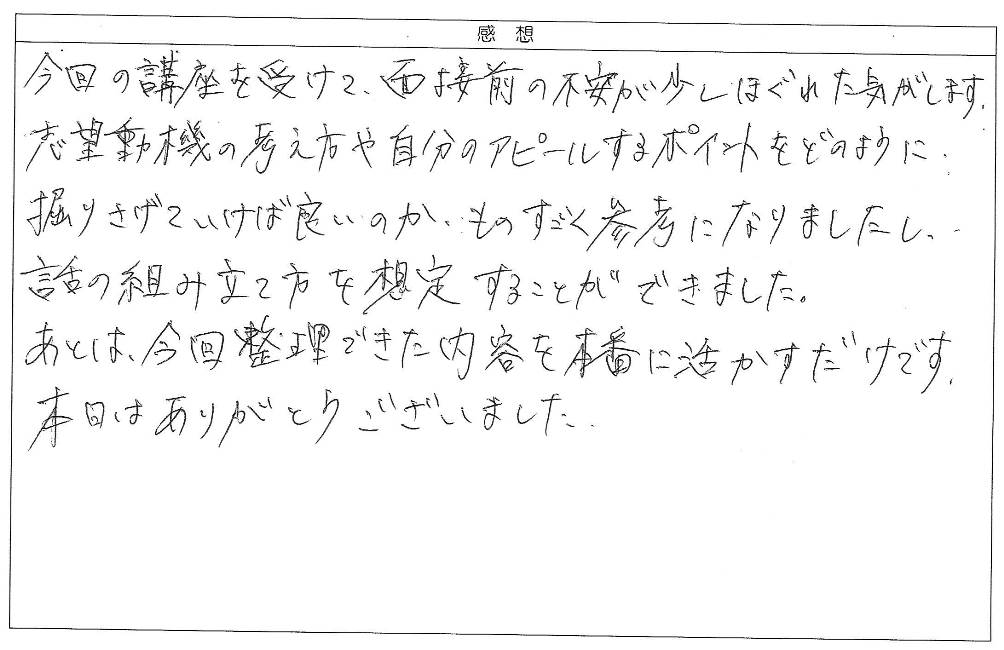 感想
今回の講座を受けて、面接前の不安が少しほぐれた気がします。
志望動機の考え方や自分のアピールするポイントをどのように、
掘りさげていけば良いのか、ものすごく参考になりましたし、
話の組み立て方を想定することができました。
あとは、今回整理できた内容を本番に活かすだけです。
本日はありがとうございました。